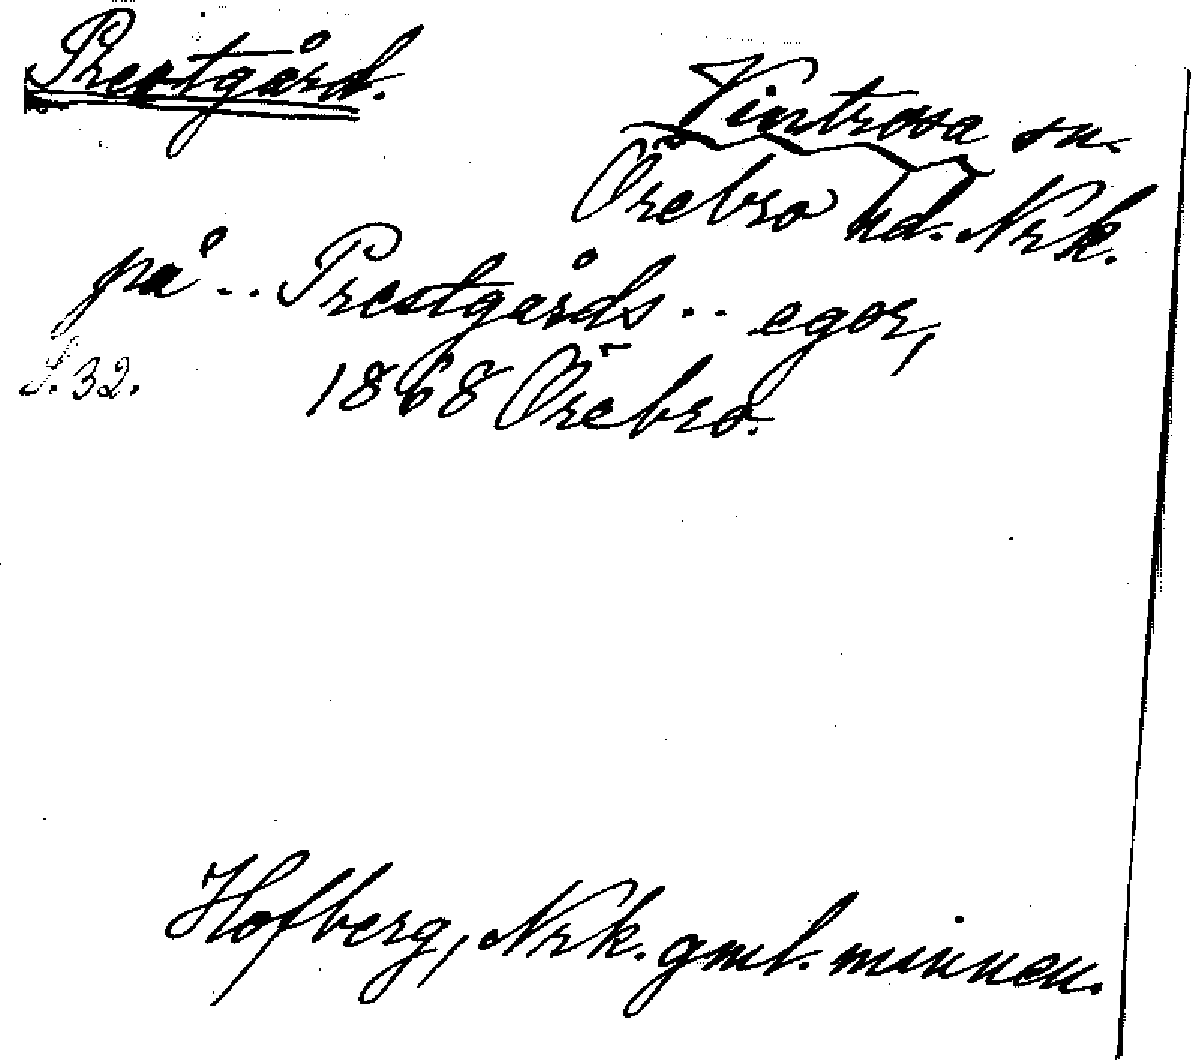 Prestgård.
Vintrosa sn.
Örebro hd. Nrk.
på .. Prestgårds .. egor,
S. 32. 1868 Örebro.
Hofberg, Nrk. gml. minnen.